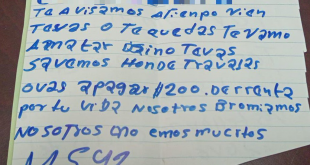 Te Avisamos Atienpo Vien
Tevas O Te quedas Tevamo
Amatar Sino Tevas
Savemos Honde Travajas
ovas apagar $200. De rrenta
por tu vida Nosotros Bromiamos
NosoTros no emos muertos